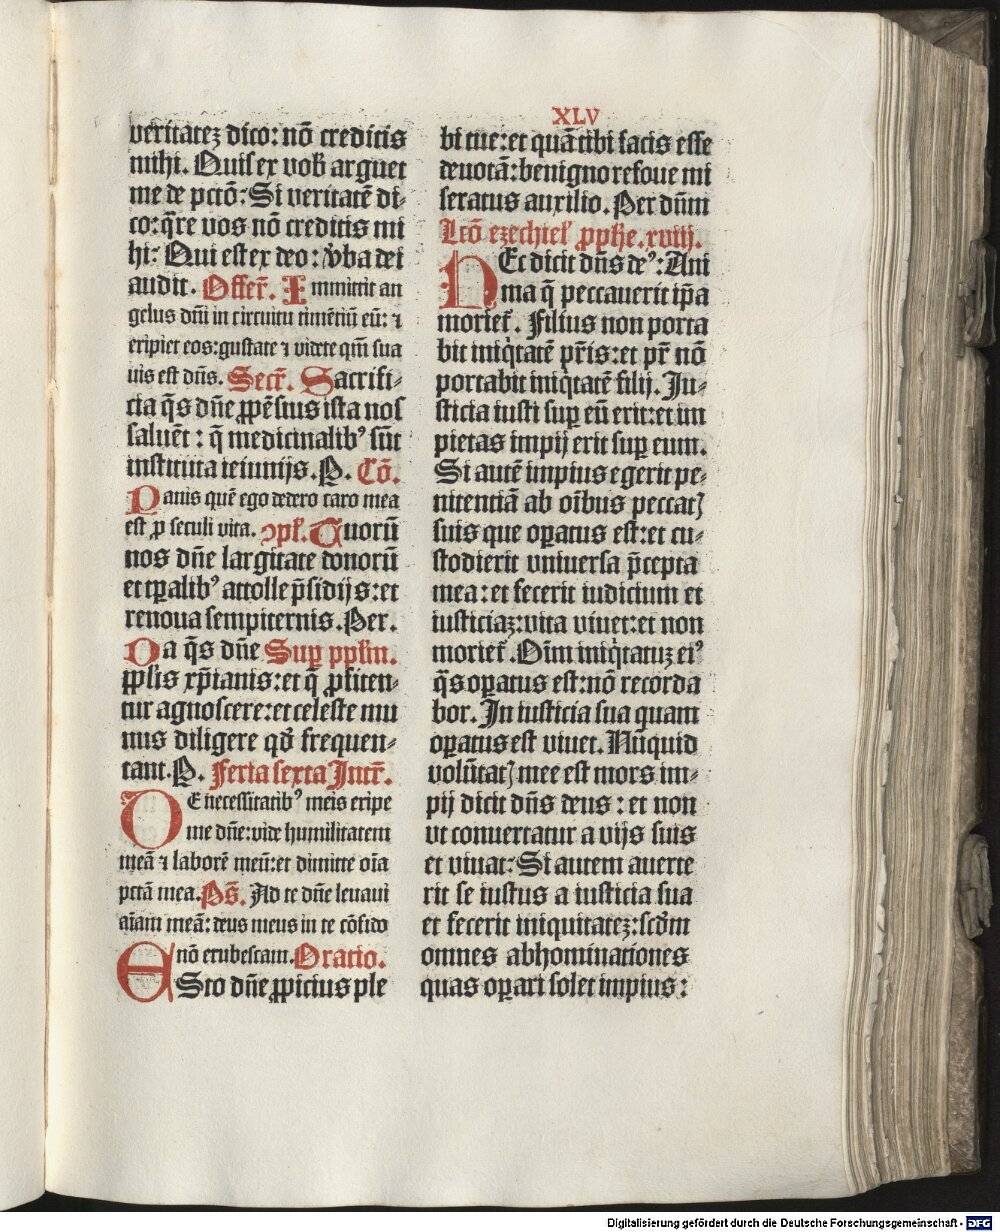 XLV
veritatez dico: nō creditis
mihi. Quis ex vob̄ arguet
me de pctō: Si veritatē di⸗
co: q̄re vos nō creditis mi
hi: Qui est ex deo: v̓ba dei
audit. Offer̄. Immittit an
gelus dn̄i in circuitu timētiū eū: ⁊
eripiet eos: gustate ⁊ videte qm̄ sua
uis est dn̄s. Secr̄. Sacrifi⸗
cia q̄s dn̄e ꝓpēsius ista nos
saluēt: q̄ medicinalibꝰ sūt
instituta ieiunijs. P. Cō.
Panis quē ego dedero caro mea
est ꝓ seculi vita. ↄpl̄. Tuorū
nos dn̄e largitate donorū
et tꝑalibꝰ attolle p̄sidijs: et
renoua sempiternis. Per.
Da q̄s dn̄e Suꝑ ppl̄m.
ppl̄is xp̄ianis: et q̄ ꝓfiten⸗
tur agnoscere: et celeste mu
nus diligere qd̓ frequen⸗
tant. P. Feria sexta Intr̄.
DE necessitatibꝰ meis eripe
me dn̄e: vide humilitatem
meā ⁊ laborē meū: et dimitte oīa
pctā mea. Ps̄. Ad te dn̄e leuaui
aīam meā: deus meus in te cōfido
nō erubescam. Oratio.
ESto dn̄e ꝓpicius ple
bi tue: et quā tibi facis esse
deuotā: benigno refoue mi
seratus auxilio. Per dn̄m
Lcō ezechiel̓ ꝓph̄e. xviij.
HEc dicit dn̄s deꝰ: Ani
ma q̄ peccauerit ip̄a
moriet̄. Filius non porta
bit iniq̇tatē pr̄is: et pr̄ nō
portabit iniq̇tatē filij. Ju⸗
sticia iusti suꝑ eū erit: et im
pietas impij erit suꝑ eum.
Si autē impius egerit pe⸗
nitentiā ab oībus peccatꝭ
suis que oꝑatus est: et cu⸗
stodierit vniuersa p̄cepta
mea: et fecerit iudicium et
iusticiaz: vita viuet: et non
moriet̄. Oīm iniq̇tatuz eiꝰ
q̄s oꝑatus est: nō recorda
bor. In iusticia sua quam
oꝑatus est viuet. Nūquid
volūtatꝭ mee est mors im⸗
pij dicit dn̄s deus: et non
vt conuertatur a vijs suis
et viuat: Si autem auerte
rit se iustus a iusticia sua
et fecerit iniquitatez: scd̓m
omnes abhominationes
quas oꝑari solet impius:
Digitalisierung gefördert durch die Deutsche Forschungsgemeinschaft - DFG